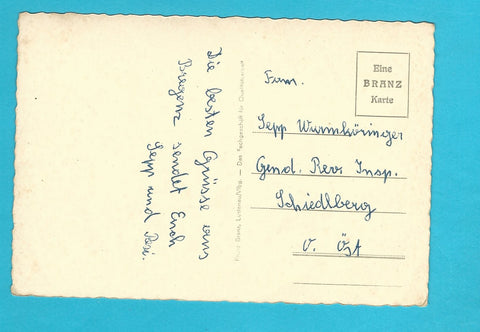 Die besten Grüsse aus
Bregenz sendet Euch
Sepp und Rosi.
Franz Branz, Lustenau/Vlbg. – Das Fachgeschäft für
Eine
BRANZ
Karte
Fam.
Sepp Wurmhöringer
Gend. Rev. Insp.
Schiedlberg
O. Öst